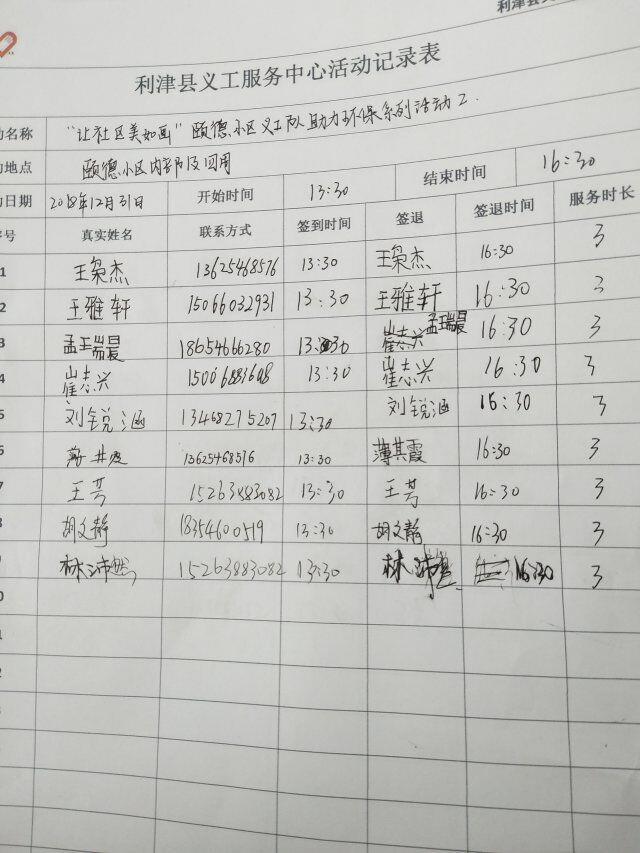 利津县义
利津县义工服务中心活动记录表
动名称 "让社区美如画"颐德小区义工队助力环保系列活动2.
地点 颐德小区内部及四周
日期 2018年12月31日 开始时间 13:30 结束时间 16:30
序号 真实姓名 联系方式 签到时间 签退 签退时间 服务时长
1 王枭杰 13625468576 13:30 王枭杰 16:30 3
2 王雅轩 15066032931 13:30 王雅轩 16:30 3
3 孟瑞晨 18654666280 13:30 孟瑞晨 16:30 3
4 崔志兴 13:30 崔志兴 16:30 3
5 刘锐涵 13468275207 13:30 刘锐涵 16:30 3
6 13625468576 13:30 薄其霞 16:30 3
7 王芳 15263883082 13:30 王芳 16:30 3
8 胡文静 18354600519 13:30 胡文静 16:30 3
9 林沛然 15263883082 13:30 林沛 16:30 3
0
1
2